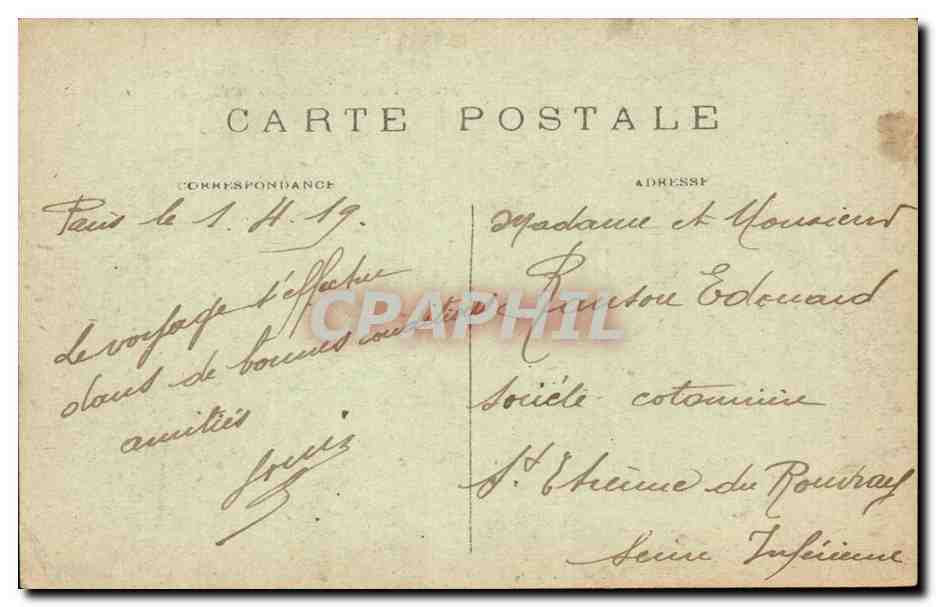 CARTE POSTALE
CORRESPONDANCE
Paris le 1.4.19.
Le voyage s'effectue
dans de bonnes conditions
amitiés
Louis
ADRESSE
Madame et Monsieur
Ranson Edouard
Société cotonnière
St. Etienne du Rouvray
Seine Inférieure
CPAPHIL